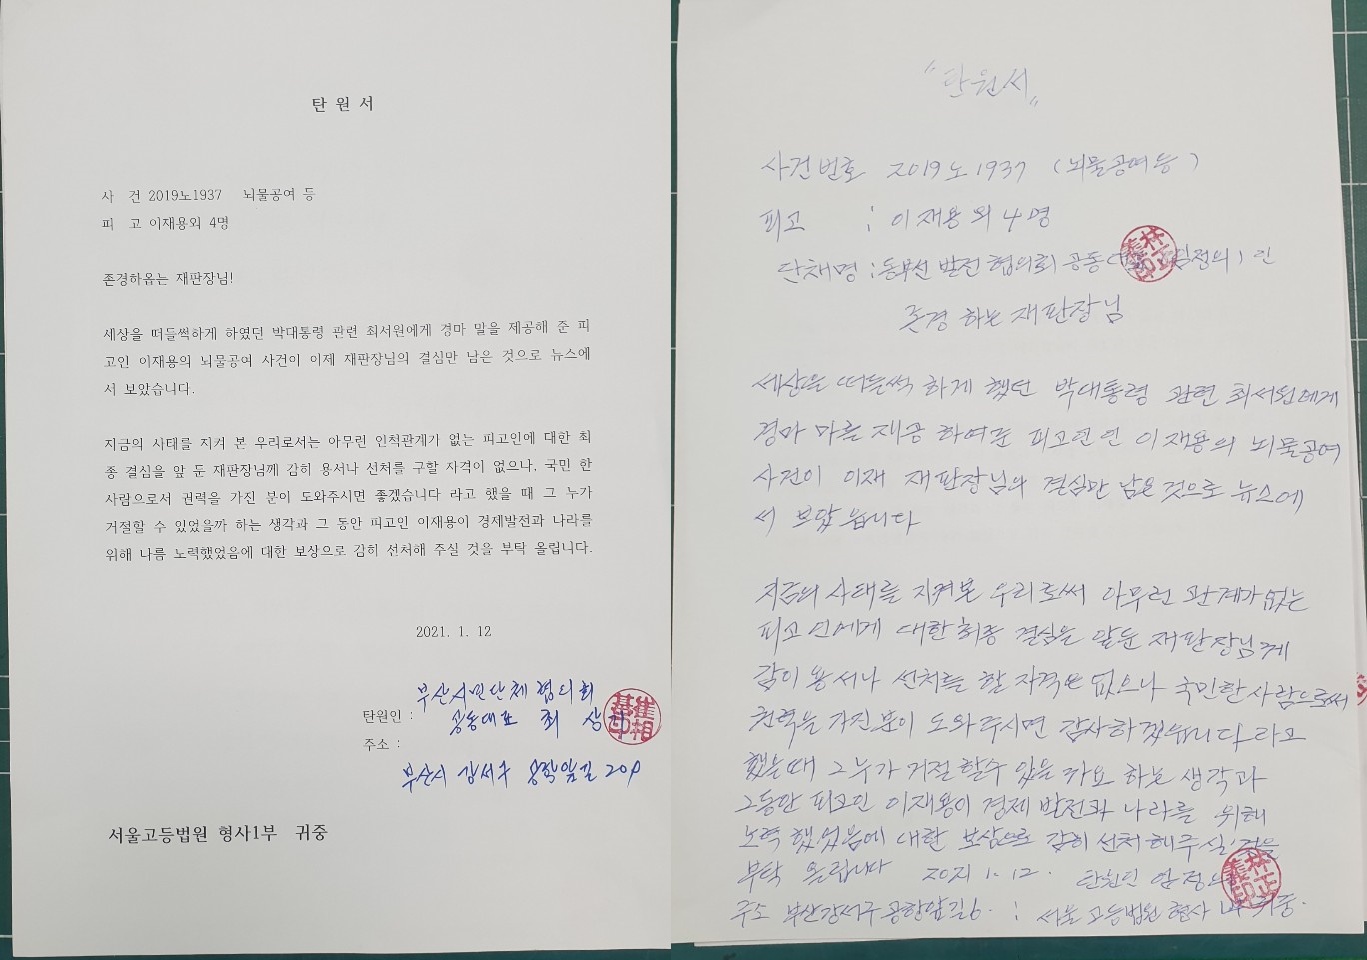 탄 원 서
사 건 2019노1937 뇌물공여 등
피 고 이재용외 4명
존경하옵는 재판장님!
세상을 떠들썩하게 하였던 박대통령 관련 최서원에게 경마 말을 제공해 준 피
고인 이재용의 뇌물공여 사건이 이제 재판장님의 결심만 남은 것으로 뉴스에
서 보았습니다.
지금의 사태를 지켜 본 우리로서는 아무런 인척관계가 없는 피고인에 대한 최
종 결심을 앞 둔 재판장님께 감히 용서나 선처를 구할 자격이 없으나, 국민 한
사람으로서 권력을 가진 분이 도와주시면 좋겠습니다 라고 했을 때 그 누가
거절할 수 있었을까 하는 생각과 그 동안 피고인 이재용이 경제발전과 나라를
위해 나름 노력했었음에 대한 보상으로 감히 선처해 주실 것을 부탁 올립니다.
2021. 1. 12
부산시민단체 협의회
탄원인 : 공동대표 최 상
주소 :
부산시 강서구 공항앞길 209
서울고등법원 형사1부 귀중
"탄원서"
사건번호 2019노1937 (뇌물공여등)
피고 : 이재용 외 4명
단채명 : 동부선 발전 협의회 공동 임정의) 인
존경 하는 재판장님
세산을 떠들썩 하게 했던 박대통령 관련 최서원에게
경마 마를 재공 하여준 피고인 이재용의 뇌물공여
사건이 이재 재판장님의 결심만 남은 것으로 뉴스에
서 보았읍니다
지금의 사태를 지켜본 우리로써 아무런 관계가 없는
피고인에게 대한 최종 결심을 앞둔 재판장님께
감이 용서나 선처를 할 자격은 없으나 국민한사람으로써
권력을 가진분이 도와주시면 감사하겠습니다라고
했을때 그누가 거절할수 있을까요 하는 생각과
그동안 피고인 이재용이 경제 발전과 나라를 위해
노력 했었음에 대한 보상으로 감히 선처해주실 것을
부탁 올립니다 2021 1. 12. 탄원인 임정의
주소 부산강서구 공항앞길6. : 서울고등법원 형사 귀중.